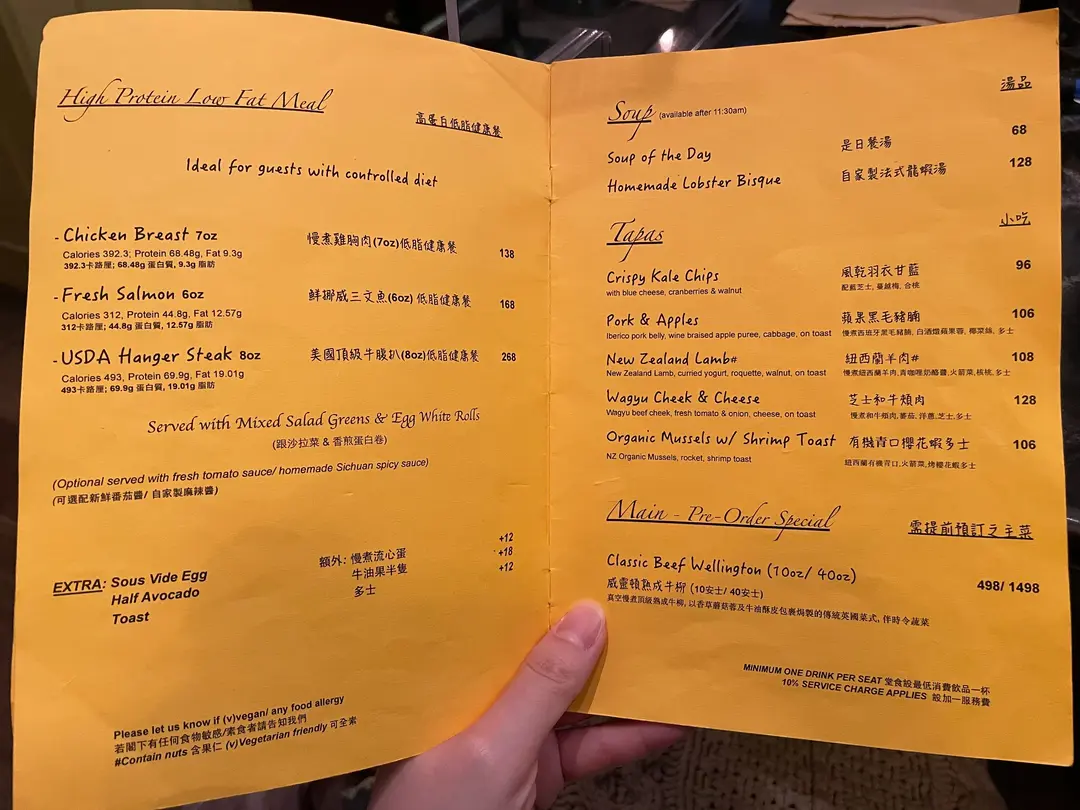 High Protein Low Fat Meal
高蛋白低脂健康餐
Ideal for guests with controlled diet
- Chicken Breast 7oz 慢煮雞胸肉(7oz)低脂健康餐 138
Calories 392.3; Protein 68.48g, Fat 9.3g
392.3卡路厘; 68.48g 蛋白質, 9.3g 脂肪
- Fresh Salmon 6oz 鮮挪威三文魚(6oz) 低脂健康餐 168
Calories 312, Protein 44.8g, Fat 12.57g
312卡路厘; 44.8g 蛋白質, 12.57g 脂肪
- USDA Hanger Steak 8oz 美國頂級牛腹扒(8oz)低脂健康餐 268
Calories 493, Protein 69.9g, Fat 19.01g
493卡路厘; 69.9g 蛋白質, 19.01g 脂肪
Served with Mixed Salad Greens & Egg White Rolls
(跟沙拉菜 & 香煎蛋白卷)
(Optional served with fresh tomato sauce/ homemade Sichuan spicy sauce)
(可選配新鮮番茄醬/ 自家製麻辣醬)
EXTRA: Sous Vide Egg 額外: 慢煮流心蛋 +12
Half Avocado 牛油果半隻 +18
Toast 多士 +12
Please let us know if (v)vegan/ any food allergy
若閣下有任何食物敏感/素食者請告知我們
#Contain nuts 含果仁 (v)Vegetarian friendly 可全素
Soup (available after 11:30am) 湯品
Soup of the Day 是日餐湯 68
Homemade Lobster Bisque 自家製法式龍蝦湯 128
Tapas 小吃
Crispy Kale Chips 風乾羽衣甘藍 96
with blue cheese, cranberries & walnut 配藍芝士, 蔓越梅, 合桃
Pork & Apples 蘋果黑毛豬腩 106
Iberico pork belly, wine braised apple puree, cabbage, on toast 慢煮西班牙黑毛豬腩, 白酒燉蘋果蓉, 椰菜絲, 多士
New Zealand Lamb# 紐西蘭羊肉# 108
New Zealand Lamb, curried yogurt, roquette, walnut, on toast 慢煮紐西蘭羊肉,青咖喱奶酪醬,火箭菜,核桃,多士
Wagyu Cheek & Cheese 芝士和牛頰肉 128
Wagyu beef cheek, fresh tomato & onion, cheese, on toast 慢煮和牛頰肉,蕃茄,洋蔥,芝士,多士
Organic Mussels w/ Shrimp Toast 有機青口櫻花蝦多士 106
NZ Organic Mussels, rocket, shrimp toast 紐西蘭有機青口,火箭菜,烤櫻花蝦多士
Main - Pre-Order Special 需提前預訂之主菜
Classic Beef Wellington (10oz/ 40oz) 498/ 1498
威靈頓熟成牛柳 (10安士/ 40安士)
真空慢煮頂級熟成牛柳, 以香草蘑菇蓉及牛油酥皮包裹焗製的傳統英國菜式, 伴時令蔬菜
MINIMUM ONE DRINK PER SEAT 堂食設最低消費飲品一杯
10% SERVICE CHARGE APPLIES 設加一服務費